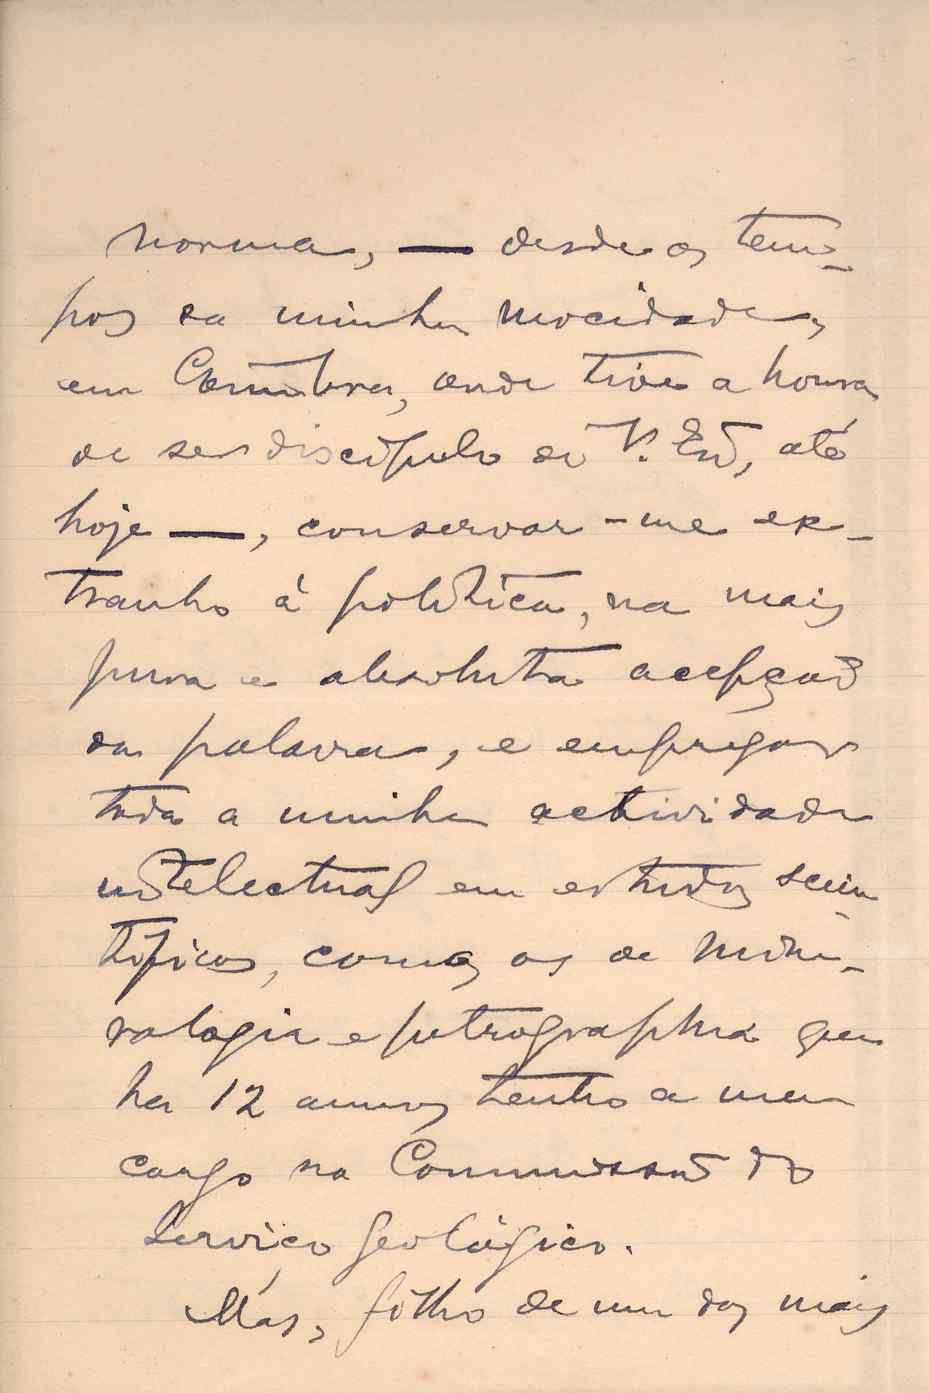 norma, — desde os tem-
pos da minha mocidade,
em Coimbra, onde tive a honra
de ser discipulo de V. Exª, até
hoje —, conservar-me ex-
tranho á politica, na mais
pura e absoluta acepção
da palavra, e empregar
toda a minha actividade
intelectual em estudos scien-
tificos, como os de mine-
ralogia e petrographia que
ha 12 annos tenho a meu
cargo na Commissão do
Serviço Geológico.
Mas, filho de um dos mais